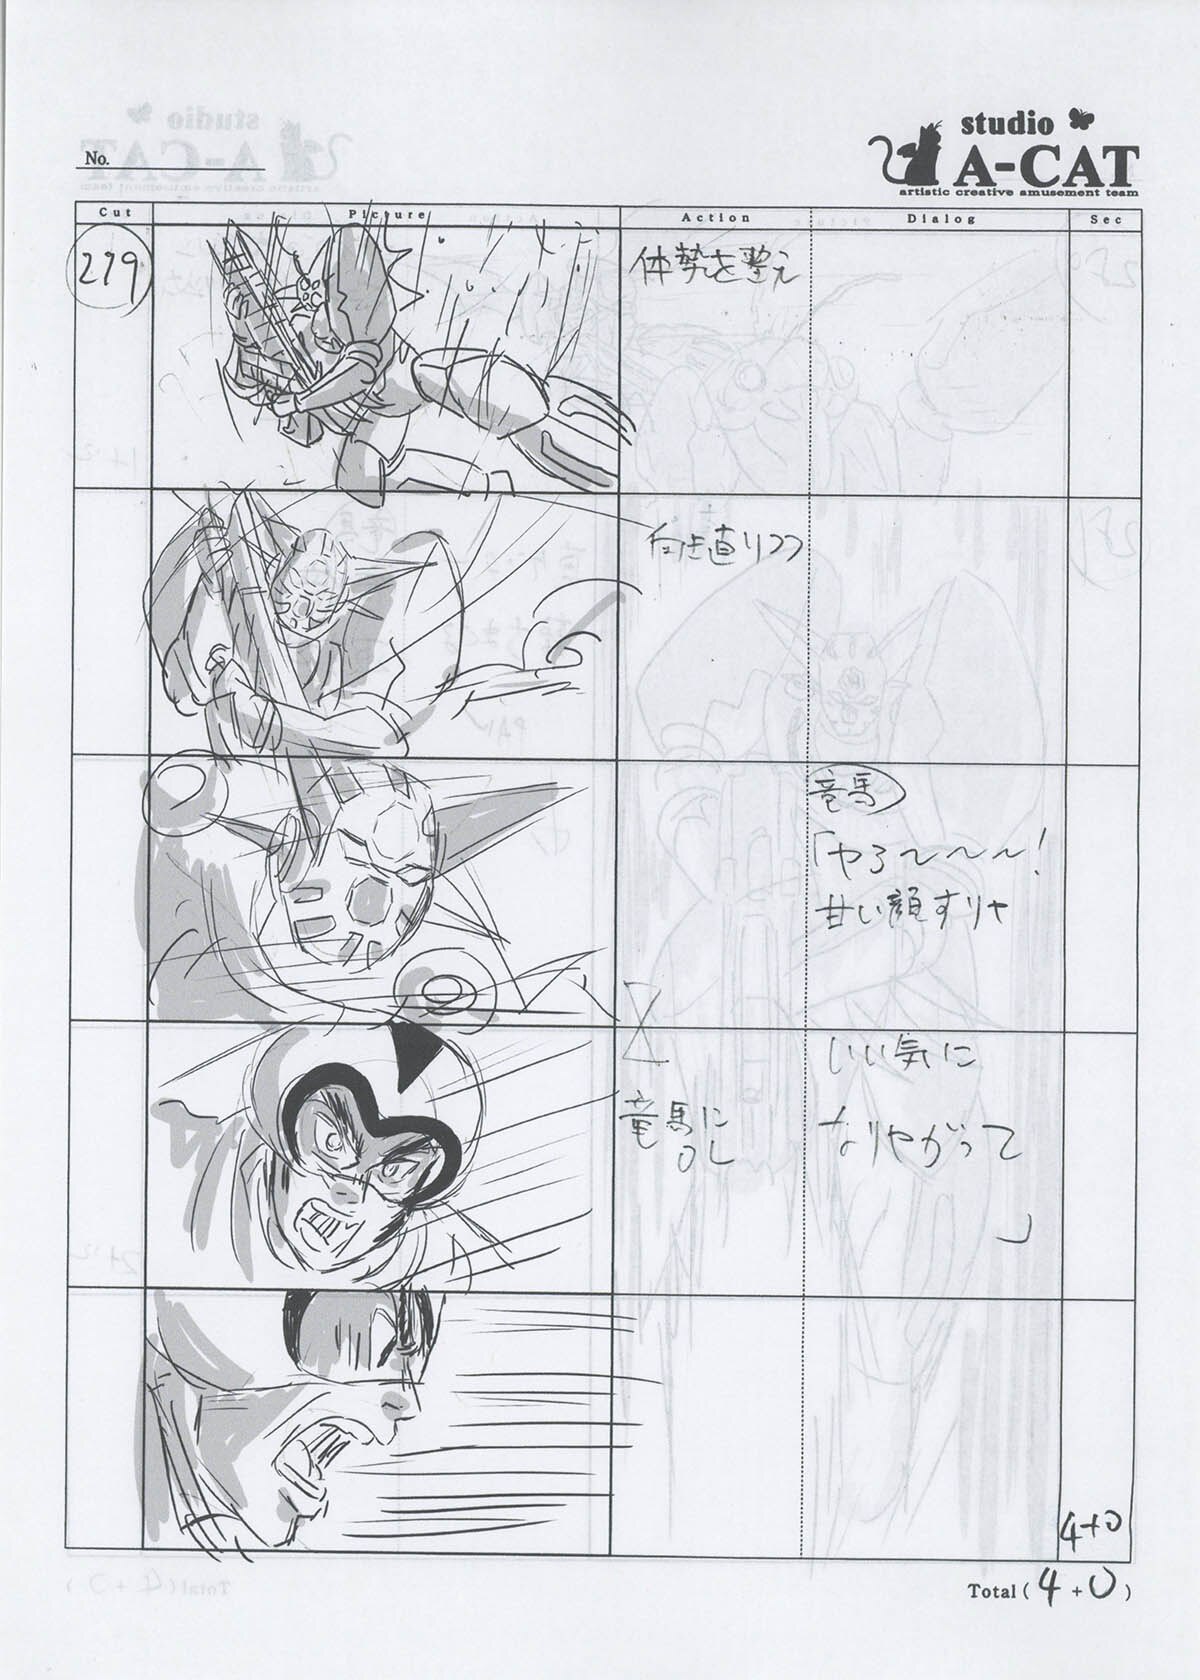 studio
A-CAT
artistic creative amusement team
No.
Cut
Picture
Action
Dialog
Sec
279
体勢を整え
向き直りつつ
竜馬
「やろ～～～!
甘い顔すりゃ
竜馬に
OL
いい気に
なりやがって
」
4+0
Total ( 4 + 0 )